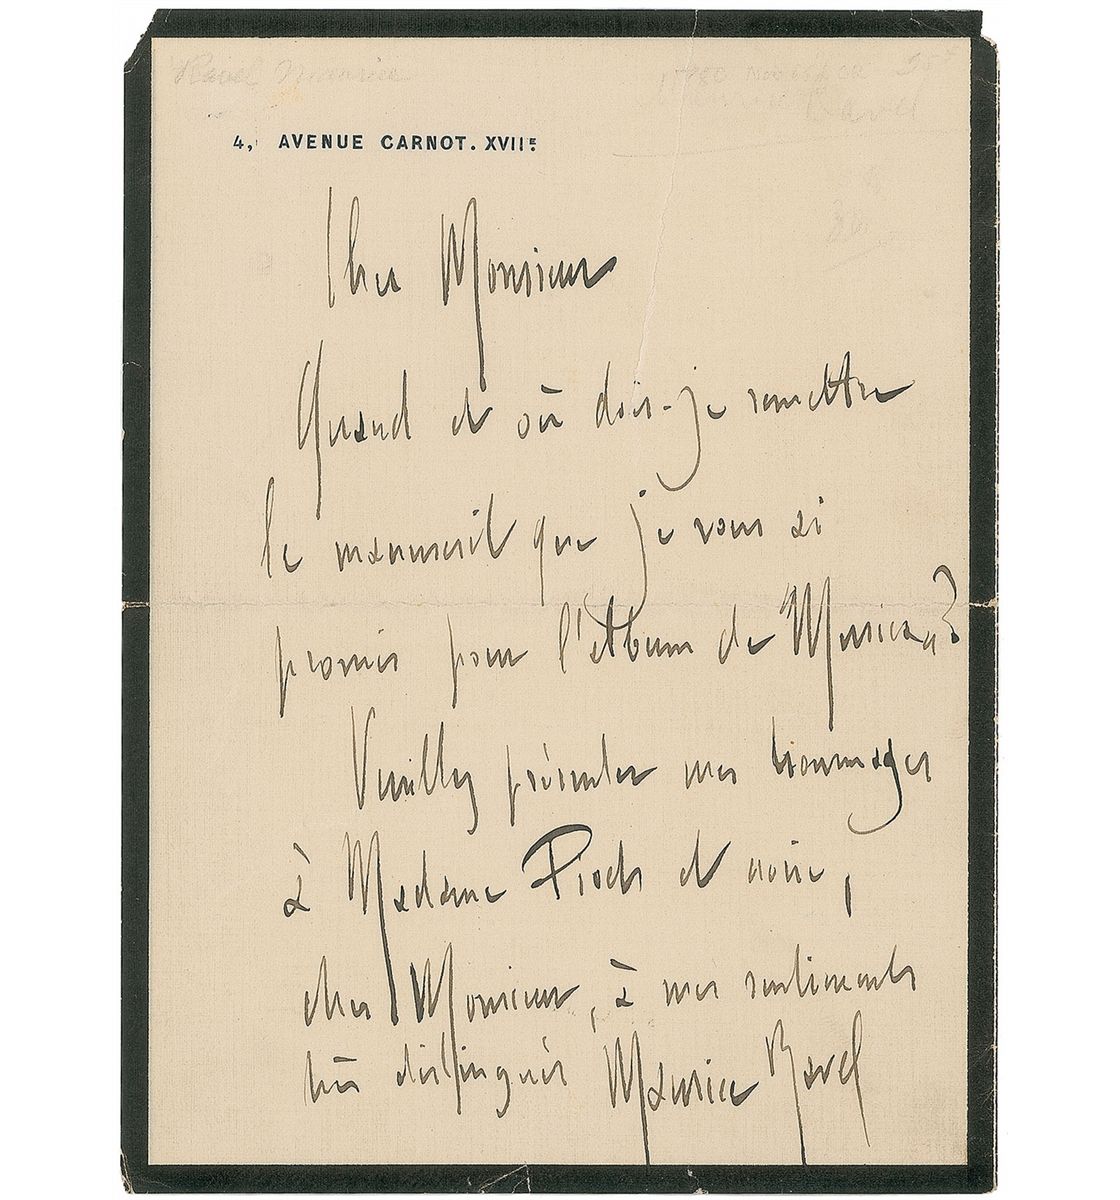 Ravel Maurice
Ravel
4, AVENUE CARNOT. XVIIE
Cher Monsieur
Quand et où dois-je remettre
le manuscrit que je vous ai
promis pour l'album de Musica?
Veuillez présenter mes hommages
à Madame Pioch et croire,
cher Monsieur, à mes sentiments
très distingués Maurice Ravel